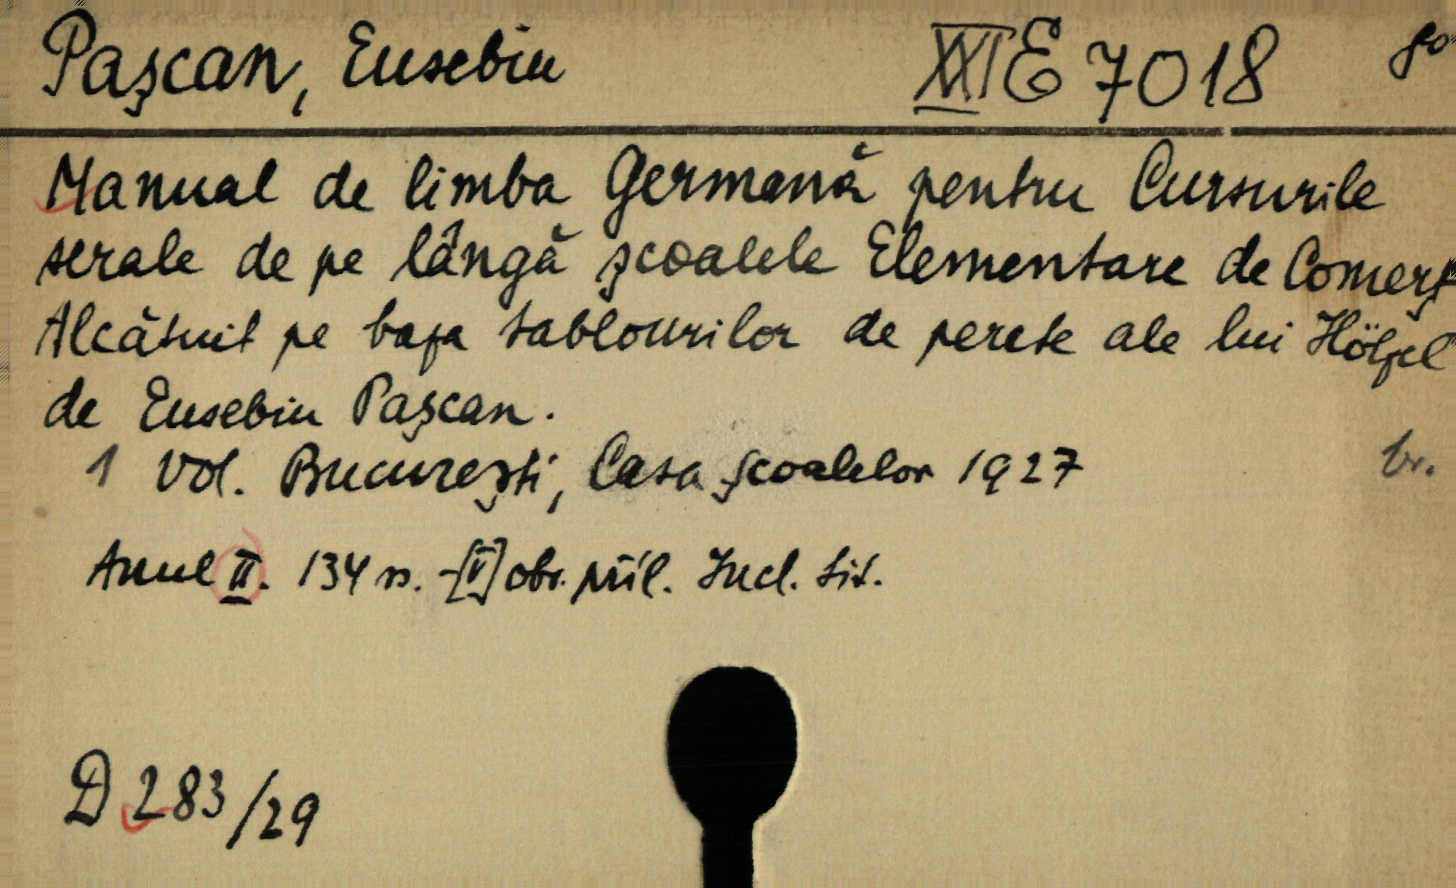 Pașcan, Eusebiu XXI E 7018 8°
Manual de limba Germană pentru Cursurile
serale de pe lângă școalele Elementare de Comerț
Alcătuit pe baza tablourilor de perete ale lui Hölzel
de Eusebiu Pașcan.
1 vol. București, Casa școalelor 1927 br.
Anul II. 134 s. -[V] obr. příl. Incl. tit.
D 283/29